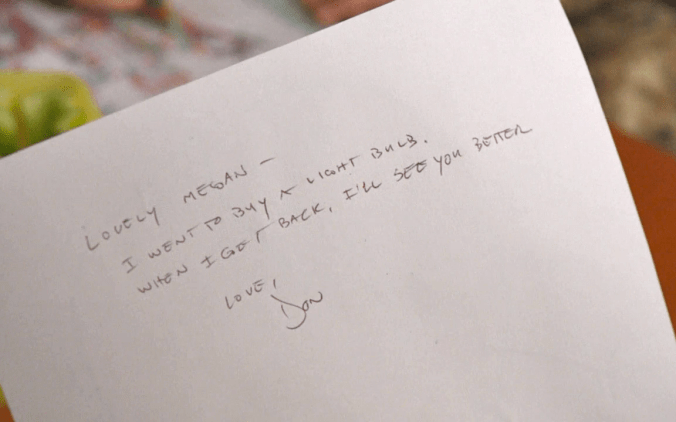 LOVELY MEGAN –
I WENT TO BUY A LIGHT BULB.
WHEN I GET BACK, I'LL SEE YOU BETTER
LOVE,
DON